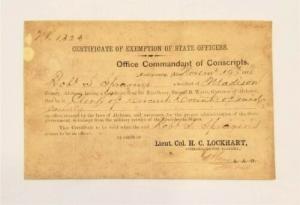 No 1323
CERTIFICATE OF EXEMPTION OF STATE OFFICERS.
Office Commandant of Conscripts,
Montgomery, Ala.
Robt S Spragins resident of Madison
County, Alabama, having a certificate from his Excellency, Governor of Alabama,
that he is Clerk of Circuit Court of
County
an officer created by the laws of Alabama, and necessary for the proper administration of the State
Government, is exempt from the military service of the Confederate States.
This Certificate to be valid when the said Robt S Spragins
ceases to be an officer.
By order of
Lieut. Col. H. C. LOCKHART,